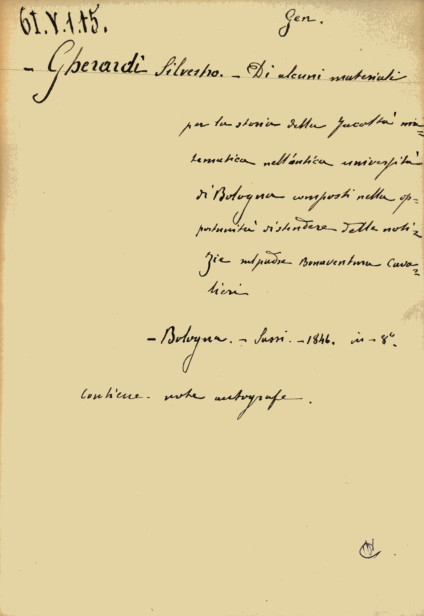 61.V.1.15.
Gen.
- Gherardi Silvestro. - Di alcuni materiali
per la storia della Facoltà ma=
tematica nell'antica università
di Bologna composti nella op=
portunità distendere delle noti=
zie sul padre Bonaventura Cava=
lieri
- Bologna. - Sassi. - 1846. in - 8°.
Contiene note autografe.